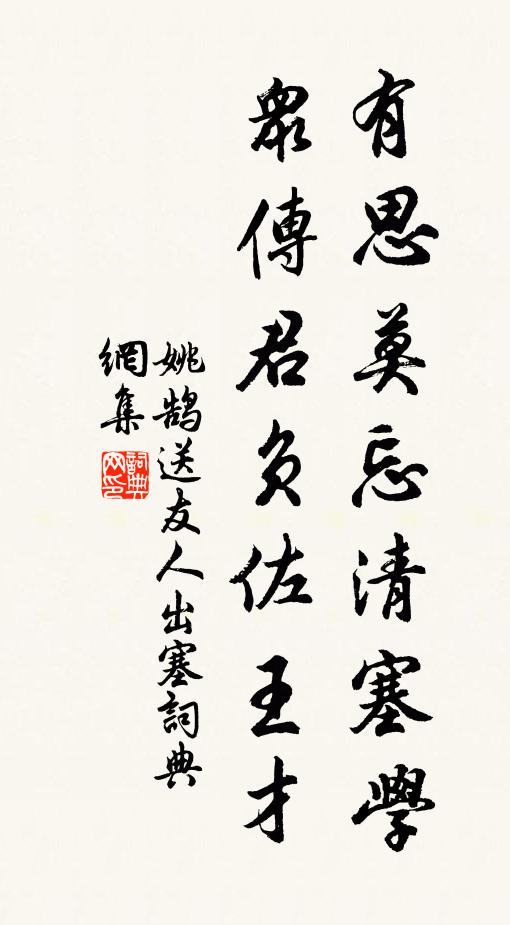 有思莫忘清塞學
眾傳君負佐王才
姚鵠送友人出塞詞典
網集
詞典网印